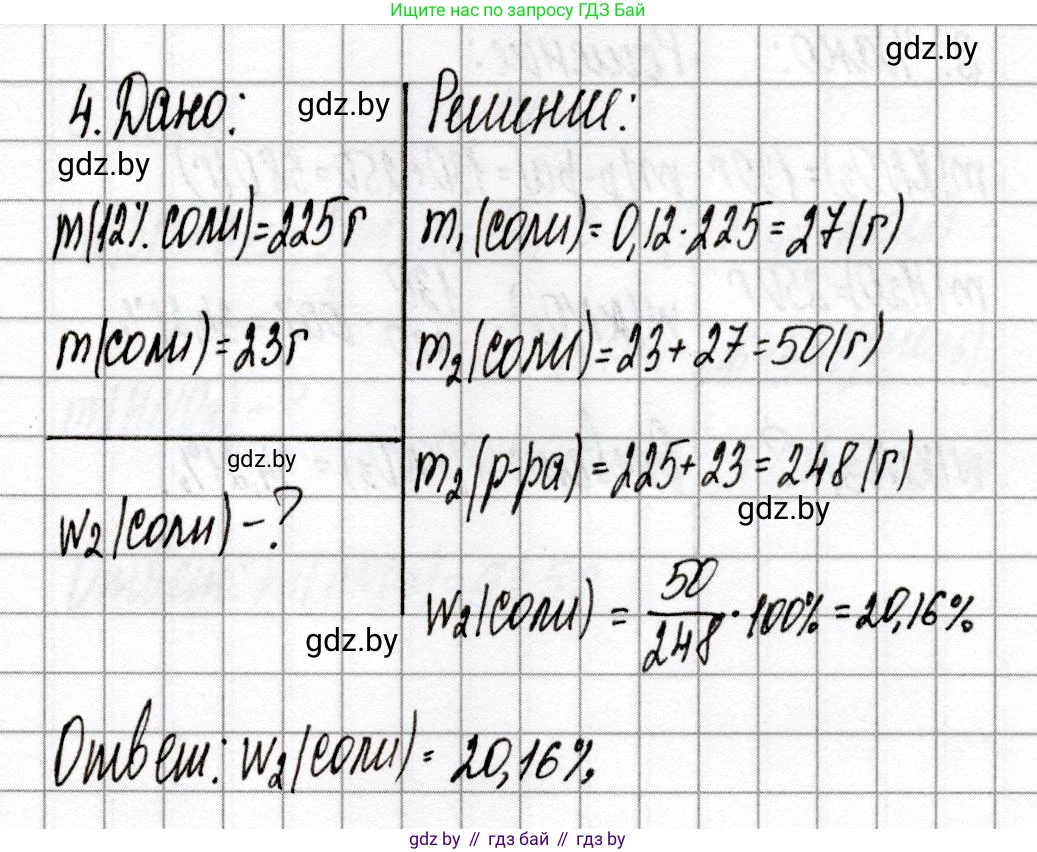 Ищите нас по запросу ГДЗ Бай
gdz.by
4. Дано:
gdz.by
Решение:
gdz.by
m(12% соли)=225г
m₁(соли)=0,12·225=27(г)
m(соли)=23г
m₂(соли)=23+27=50(г)
gdz.by
m₂(р-ра)=225+23=248(г)
gdz.by
w₂(соли)-?
w₂(соли) = 50/248 · 100% = 20,16%
gdz.by
Ответ: w₂(соли) = 20,16%
gdz.by // гдз бай // гдз by